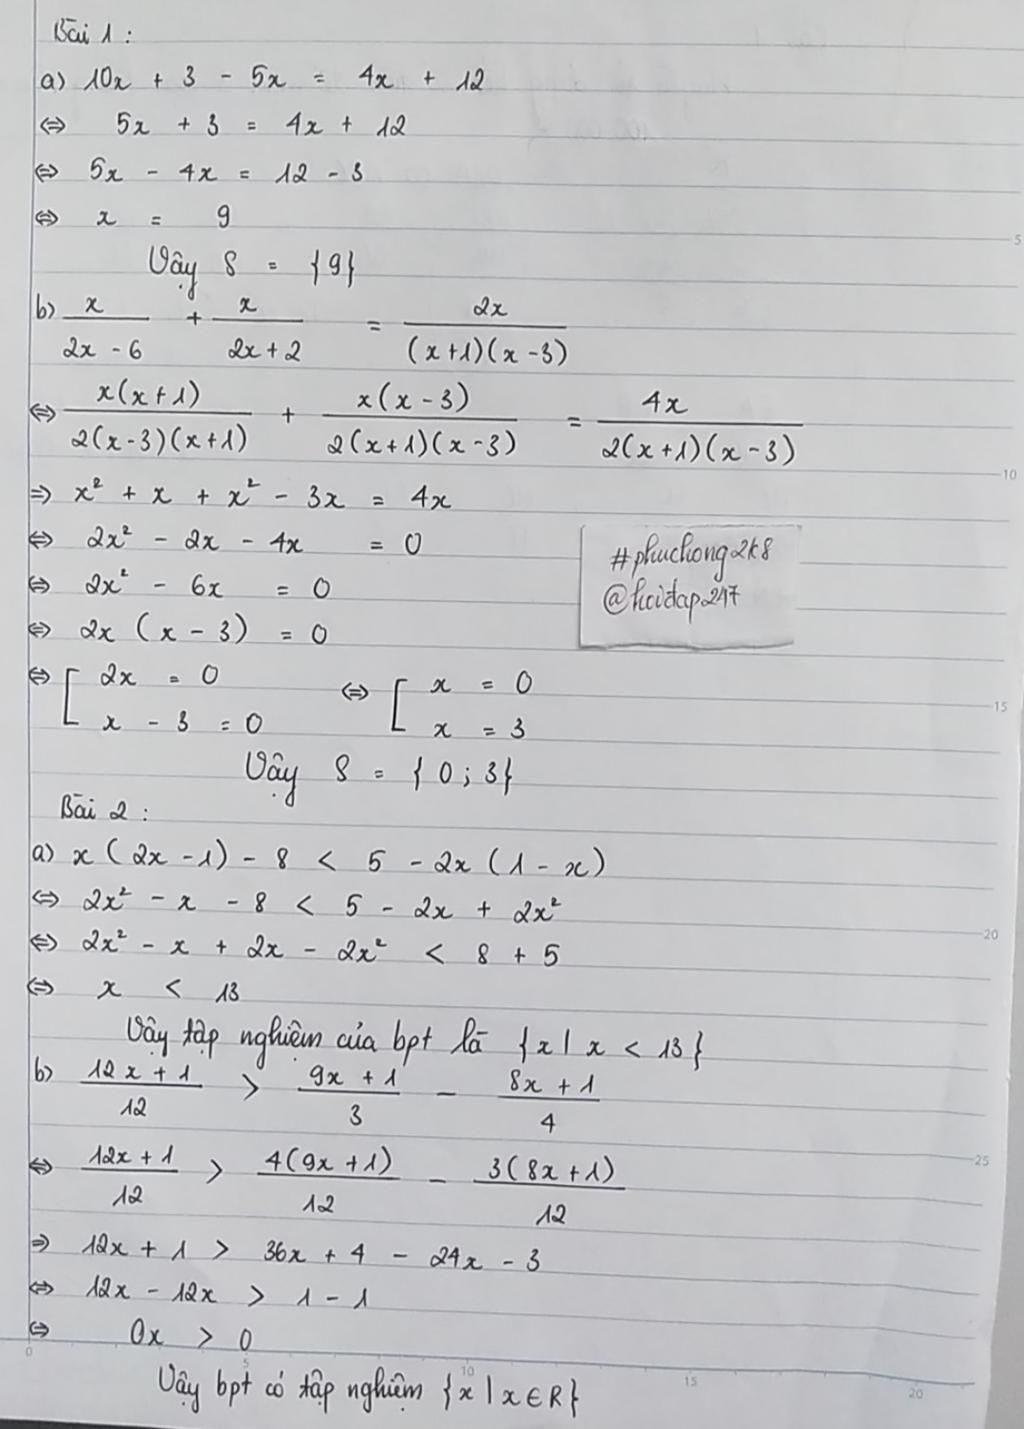 Bài 1 :
a) 10x + 3 - 5x = 4x + 12
⇔ 5x + 3 = 4x + 12
⇔ 5x - 4x = 12 - 3
⇔ x = 9
Vậy S = {9}
b) x/(2x - 6) + x/(2x + 2) = 2x/((x+1)(x-3))
⇔ x(x+1)/(2(x-3)(x+1)) + x(x-3)/(2(x+1)(x-3)) = 4x/(2(x+1)(x-3))
⇒ x² + x + x² - 3x = 4x
⇔ 2x² - 2x - 4x = 0
⇔ 2x² - 6x = 0
⇔ 2x (x - 3) = 0
⇔ [ 2x = 0 ⇔ [ x = 0
x - 3 = 0 x = 3
Vậy S = {0 ; 3}
#phuchong2k8
@hoidap247
Bài 2 :
a) x (2x - 1) - 8 < 5 - 2x (1 - x)
⇔ 2x² - x - 8 < 5 - 2x + 2x²
⇔ 2x² - x + 2x - 2x² < 8 + 5
⇔ x < 13
Vậy tập nghiệm của bpt là {x | x < 13}
b) (12x + 1)/12 > (9x + 1)/3 - (8x + 1)/4
⇔ (12x + 1)/12 > 4(9x + 1)/12 - 3(8x + 1)/12
⇒ 12x + 1 > 36x + 4 - 24x - 3
⇔ 12x - 12x > 1 - 1
⇔ 0x > 0
Vậy bpt có tập nghiệm {x | x ∈ R}